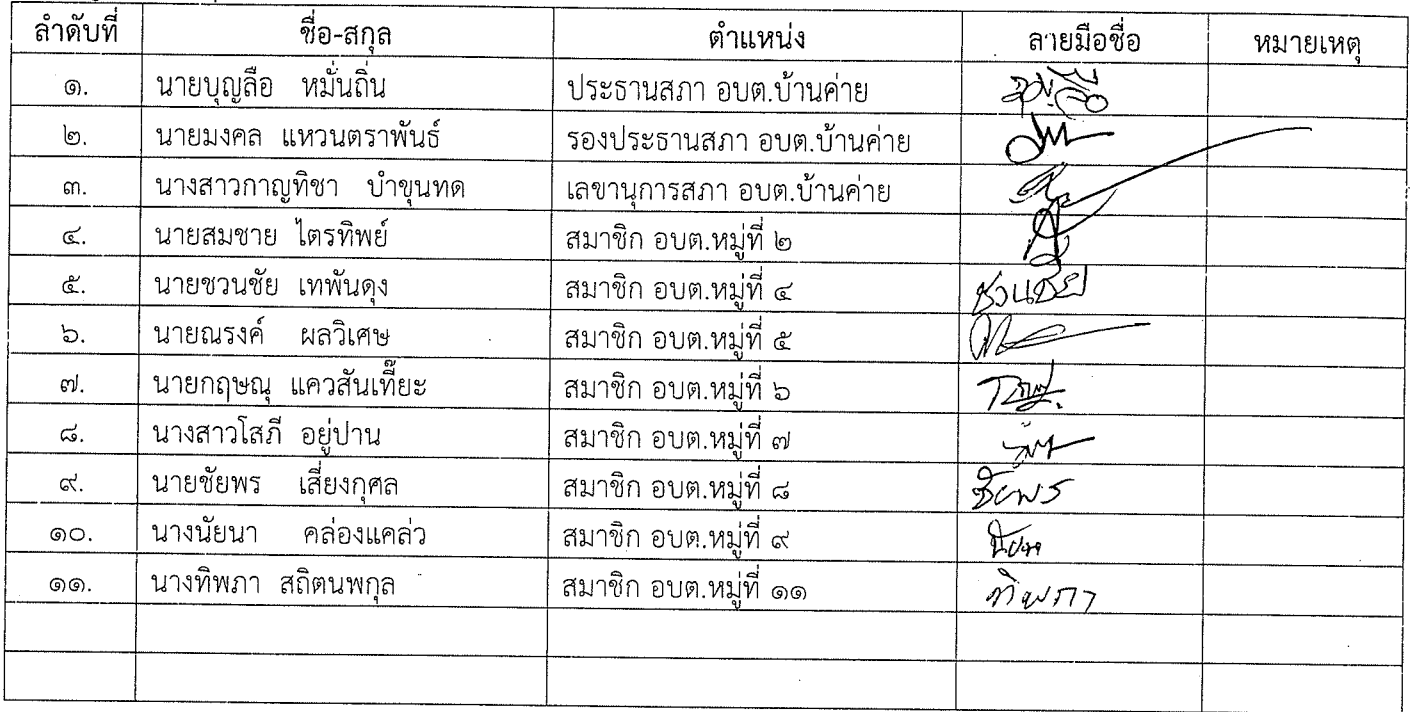 ลำดับที่ ชื่อ-สกุล ตำแหน่ง ลายมือชื่อ หมายเหตุ
๑. นายบุญลือ หมั่นถิ่น ประธานสภา อบต.บ้านค่าย
๒. นายมงคล แหวนตราพันธ์ รองประธานสภา อบต.บ้านค่าย
๓. นางสาวกาญทิชา บำขุนทด เลขานุการสภา อบต.บ้านค่าย
๔. นายสมชาย ไตรทิพย์ สมาชิก อบต.หมู่ที่ ๒
๕. นายชวนชัย เทพันดุง สมาชิก อบต.หมู่ที่ ๔ ชวนชัย
๖. นายณรงค์ ผลวิเศษ สมาชิก อบต.หมู่ที่ ๕
๗. นายกฤษณุ แควสันเที๊ยะ สมาชิก อบต.หมู่ที่ ๖
๘. นางสาวโสภี อยู่ปาน สมาชิก อบต.หมู่ที่ ๗
๙. นายชัยพร เสี่ยงกุศล สมาชิก อบต.หมู่ที่ ๘ ชัยพร
๑๐. นางนัยนา คล่องแคล่ว สมาชิก อบต.หมู่ที่ ๙
๑๑. นางทิพภา สถิตนพกุล สมาชิก อบต.หมู่ที่ ๑๑ ทิพภา